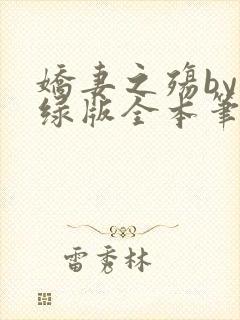 娇妻之殇by
绿版全本笔
雷秀林